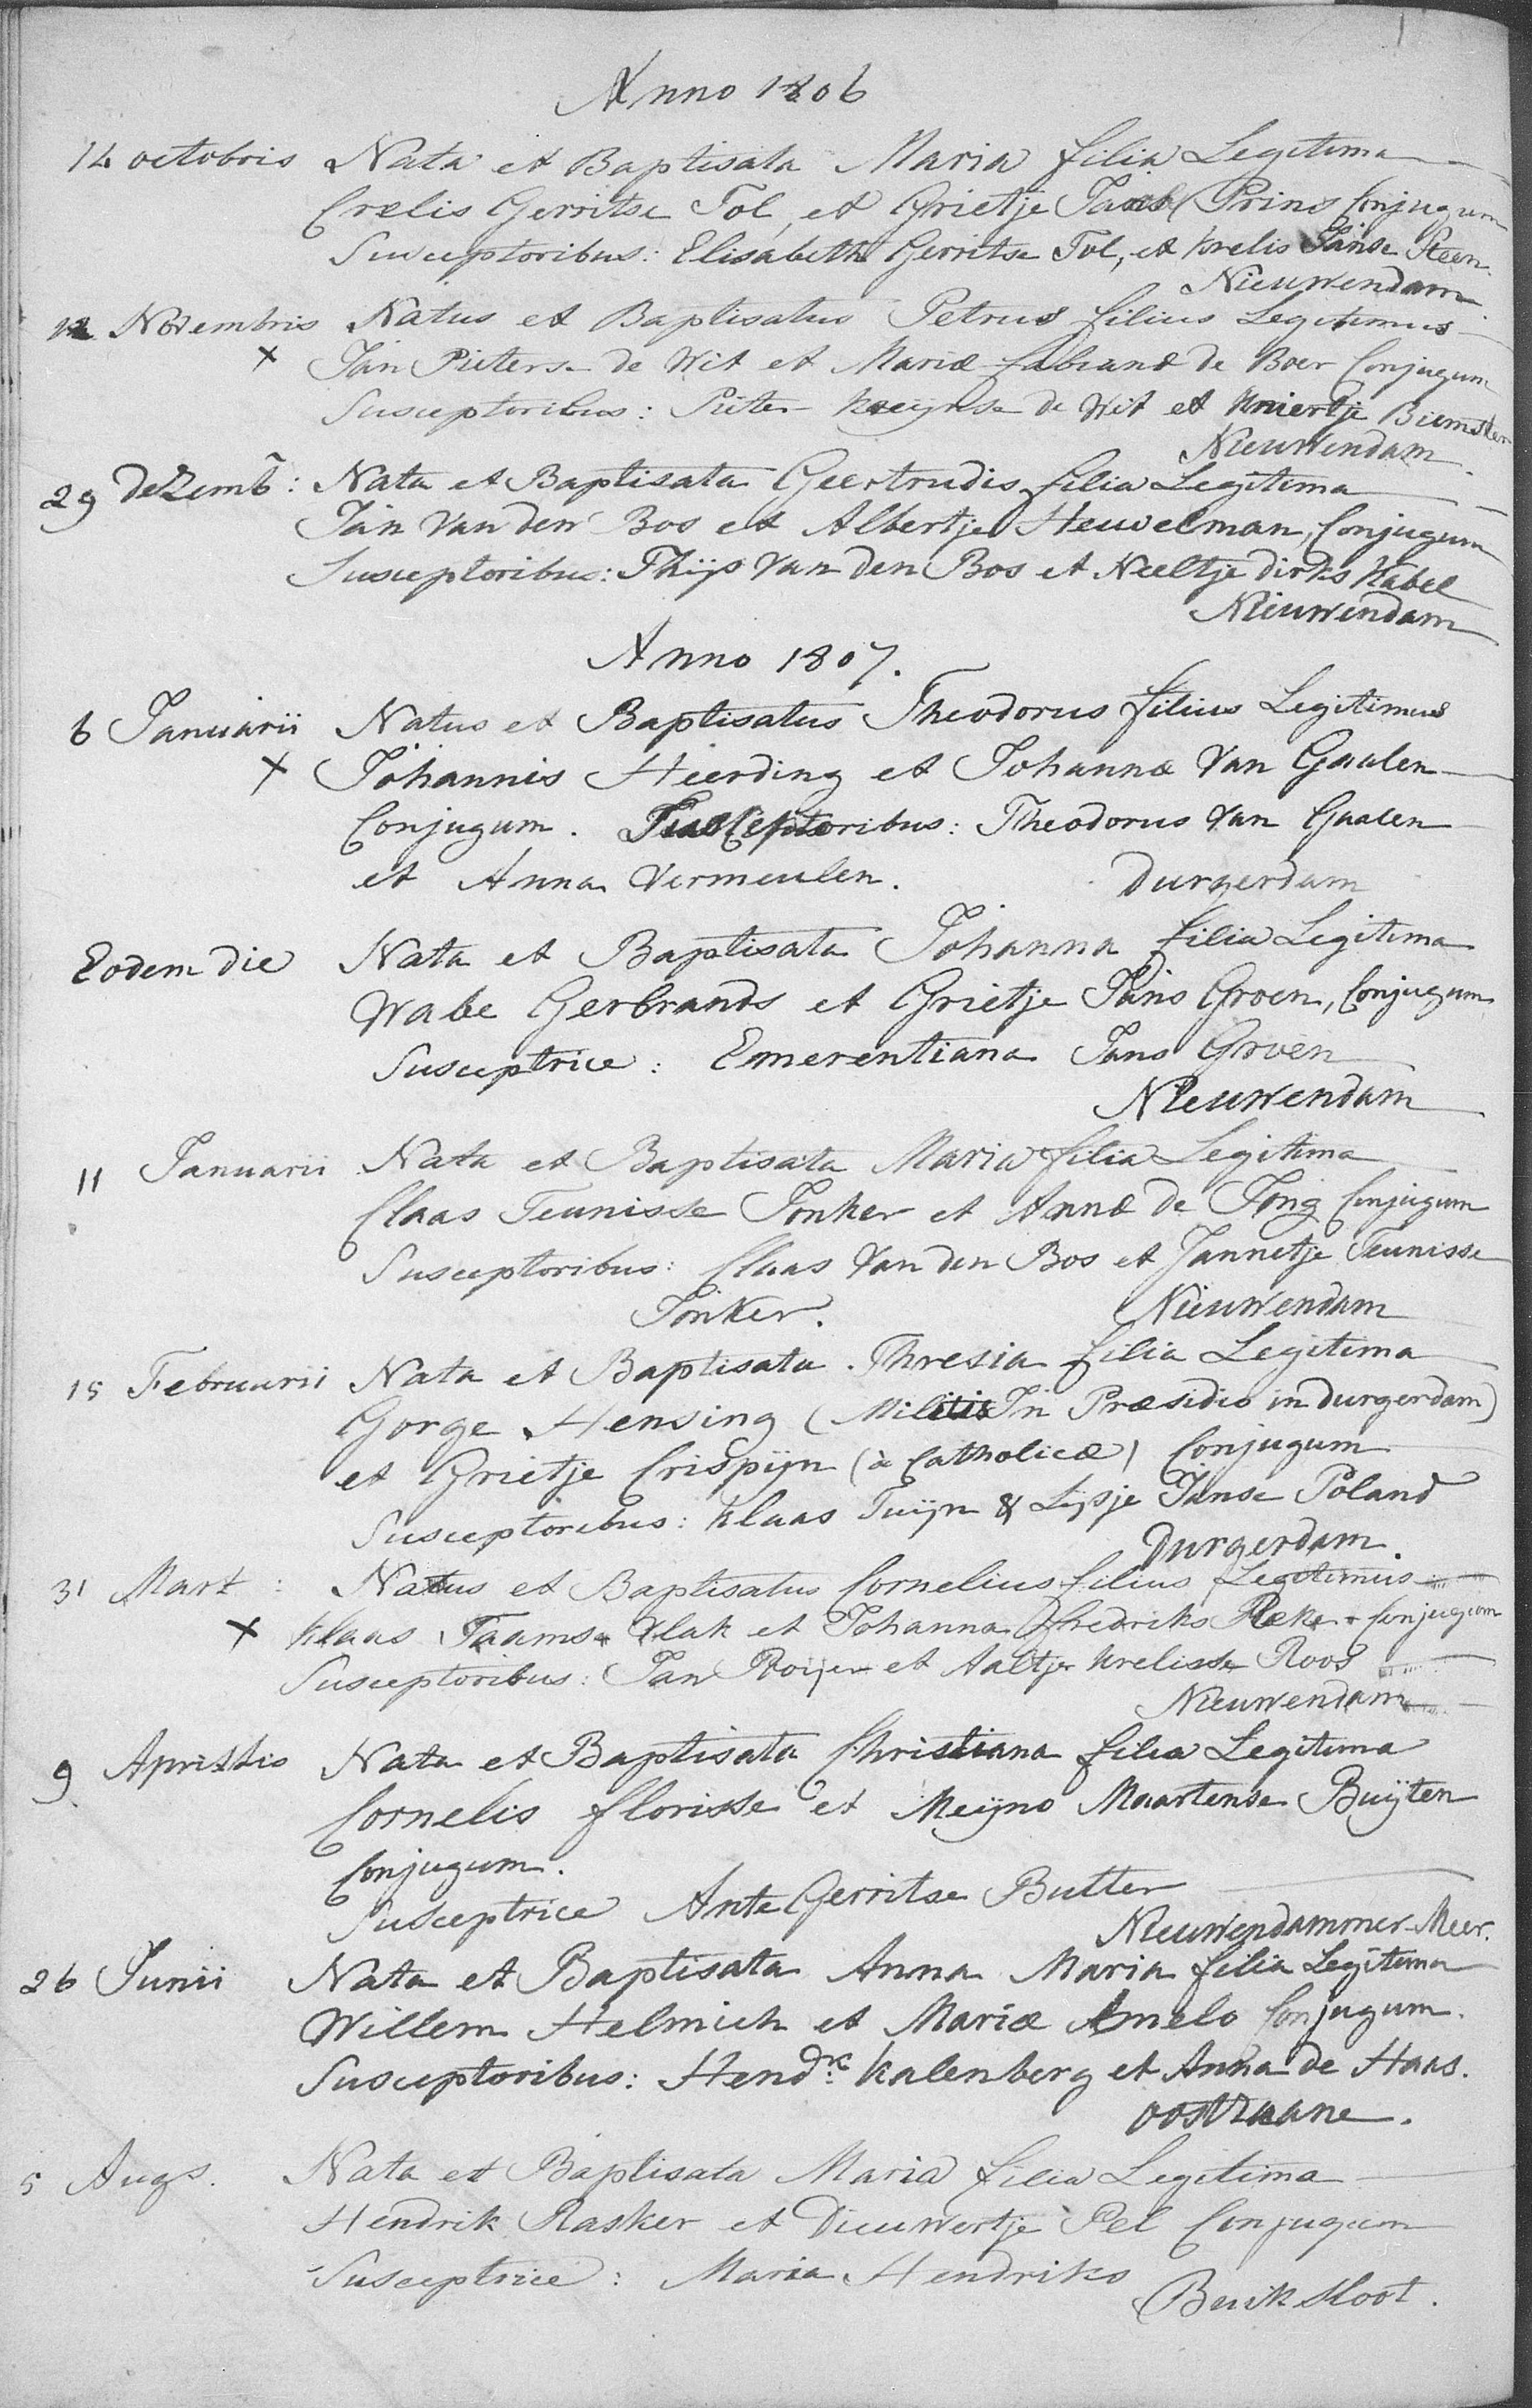 Anno 1806
14 octobris Nata et Baptisata Maria filia Legitima
Crelis Gerritse Tol, et Grietje Jacob Prins Conjugum
Susceptoribus: Elisabeth Gerritse Tol, et krelis Janse Steen
Nieuwendam
12 Novembris Natus et Baptisatus Petrus filius Legitimus
x Jan Pieterse de Wit et Mariæ de Boer Conjugum
Susceptoribus: Pieter de Wit et kniertje Biemster
Nieuwendam.
29 deZemb: Nata et Baptisata Geertrudis filia Legitima
Jan Van den Bos et Albertje Heuvelman, Conjugum
Susceptoribus: Thijs Van den Bos et Neeltje dirks Kabel
Nieuwendam
Anno 1807.
6 Januarii Natus et Baptisatus Theodorus filius Legitimus
x Johannis Heerding et Johannæ Van Gaalen
Conjugum. Susceptoribus: Theodorus Van Gaalen
et Anna Vermeulen. durgerdam
Eodem die Nata et Baptisata Johanna filia Legitima
Wabe Gerbrands et Grietje Jans Groen, Conjugum
Susceptrice: Emerentiana Jans Groen
Nieuwendam
11 Januarii Nata et Baptisata Maria filia Legitima
Claas Teunisse Jonker et Annæ de Jong Conjugum
Susceptoribus: Claas Van den Bos et Jannetje Teunisse
Jonker. Nieuwendam
15 Februarii Nata et Baptisata Thresia filia Legitima
Gorge Hensing (Militis In Præsidio in durgerdam)
et Grietje Crispijn (à Catholicæ) Conjugum
Susceptoribus: Klaas Tuijn & Lijsje Janse Poland
Durgerdam.
31 Mart: Natus et Baptisatus Cornelius filius Legitimus
x Klaas Taams Vlak et Johanna fredriks Conjugum
Susceptoribus: Jan et Aaltje krelisse Roos
Nieuwendam
9 Aprillis Nata et Baptisata Christiana filia Legitima
Cornelis florisse et Meijno Maartense Buijten
Conjugum.
Susceptrice Ante Gerritse Butter
Nieuwendammer-Meer.
26 Junii Nata et Baptisata Anna Maria filia Legitima
Willem Helmich et Mariæ Amelo Conjugum.
Susceptoribus: Hendk: Kalenberg et Anna de Haas.
oostzaane.
5 Augs. Nata et Baptisata Maria filia Legitima
Hendrik Rasker et Dieuwertje Pel Conjugum
Susceptrice: Maria Hendriks
Buiksloot.